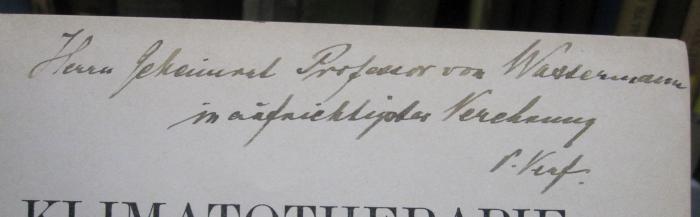 Herrn Geheimrat Professor von Wassermann
in aufrichtigster Verehrung
d. Verf.
KLIMATOTHERAPIE